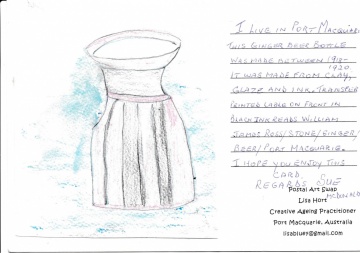 I LIVE IN PORT MACQUARIE
THIS GINGER BEER BOTTLE
WAS MADE BETWEEN 1914-
1920
IT WAS MADE FROM CLAY,
GLAZE AND INK. TRANSFER
PRINTED LABLE ON FRONT IN
BLACK INK READS WILLIAM
JAMES ROSS/STONE/GINGER/
BEER/PORT MACQUARIE.
I HOPE YOU ENJOY THIS
CARD.
REGARDS SUE
MCDONALD
Postal Art Swap
Lisa Hort
Creative Ageing Practitioner
Port Macquarie, Australia
lisabluey@gmail.com